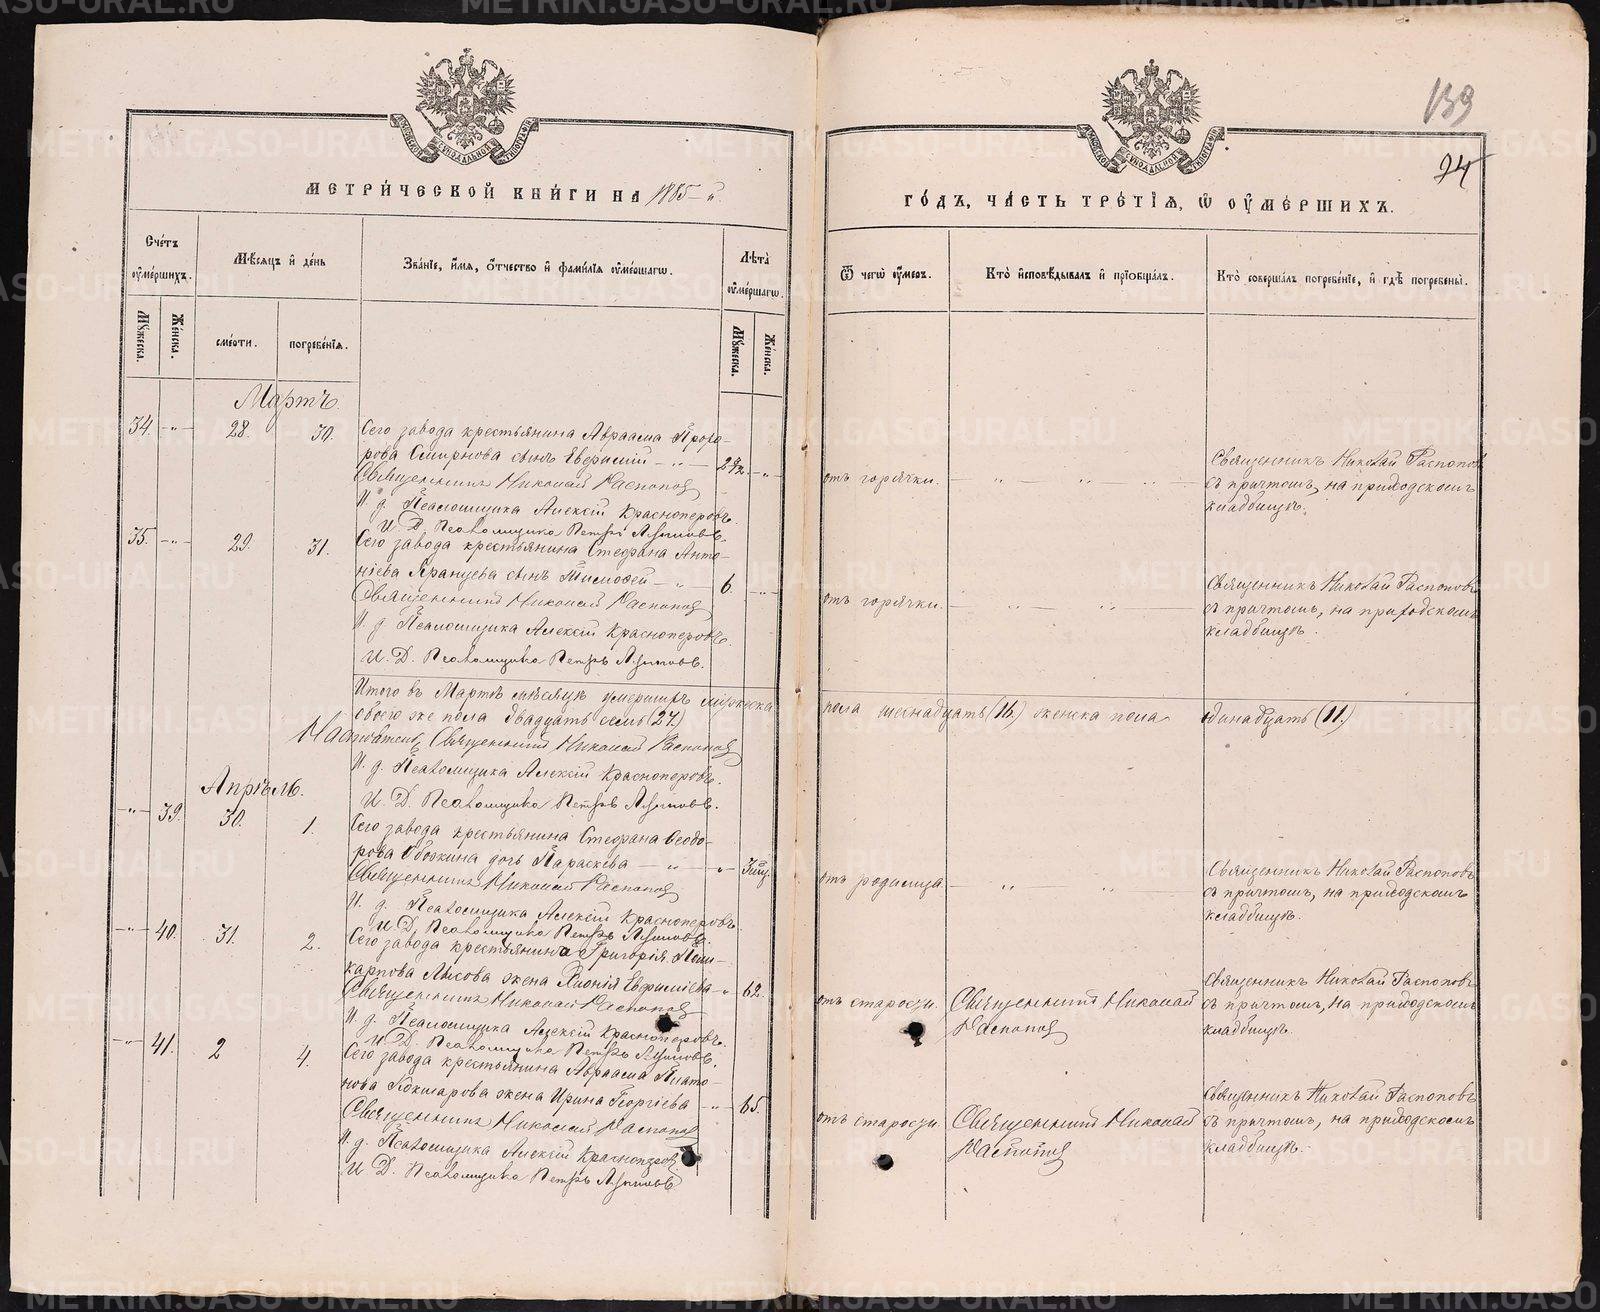 МЕТРИ́ЧЕСКОЙ КНИ́ГИ НА 1885-й
Сче́тъ ᲂу҆ме́ршихъ.
Мѣ́сяцъ и҆ де́нь
Зва́нїе, и҆́мя, ѻ҆́тчество и҆ фами́лїя ᲂу҆ме́ршагѡ.
Лѣ́та ᲂу҆ме́ршагѡ.
Мꙋ́жеска.
Же́нска.
сме́рти.
погребе́нїя.
Мꙋ́жеска.
Же́нска.
Мартъ.
34. -„- 28. 30. Сего завода крестьянина Авраама Прохо-
рова Смирнова сынъ Евфимий — „ —
Священникъ Николай Распопов
И. д. Псаломщика Алексій Красноперовъ.
И. Д. Псаломщика Петръ
35. -„- 29. 31. Сего завода крестьянина Стефана Анто-
ніева сынъ Тимофей — „ — 6. -„-
Священникъ Николай Распопов
И. д. Псаломщика Алексій Красноперовъ.
И. Д. Псаломщика Петръ
Итого въ Мартѣ мѣсяцѣ умершихъ мужеска
обоего же пола двадцать семь (27)
Священникъ Николай Распопов
И. д. Псаломщика Алексій Красноперовъ.
И. Д. Псаломщика Петръ
Апрѣль.
-„- 39. 30. 1. Сего завода крестьянина Стефана Ѳеодо-
рова дочь Параскева — „ -„-
Священникъ Николай Распопов
И. д. Псаломщика Алексій Красноперовъ.
И. Д. Псаломщика Петръ
-„- 40. 31. 2. Сего завода крестьянина Григорія Поли-
карпова Лысова жена Хіонія Евфиміева -„- 62.
Священникъ Николай Распопов
И. д. Псаломщика Алексій Красноперовъ.
И. Д. Псаломщика Петръ
-„- 41. 2 4. Сего завода крестьянина Авраама Плато-
нова Кокшарова жена Ирина Георгіева -„- 65.
Священникъ Николай Распопов
И. д. Псаломщика Алексій Красноперов
И. Д. Псаломщика Петръ
139
74
ГО́ДЪ, ЧА́СТЬ ТРЕ́ТЇЯ, Ѽ ОУ҆МЕ́РШИХЪ.
Ѿ чегѡ̀ ᲂу҆́меръ.
Кто̀ и҆сповѣ́дывалъ и҆ прїѻбща́лъ.
Кто̀ соверша́лъ погребе́нїе, и҆ гдѣ̀ погребены̀.
отъ горячки. — „ — „ — „ —
Священникъ Николай Распоповъ
съ причтомъ, на приходскомъ
кладбищѣ.
отъ горячки. — „ — „ —
Священникъ Николай Распоповъ
съ причтомъ, на приходскомъ
кладбищѣ.
пола шестнадцать (16.) женска пола одинадцать (11.)
отъ родимца. — „ — „ —
Священникъ Николай Распоповъ
съ причтомъ, на приходскомъ
кладбищѣ.
отъ старости. Священникъ Николай
Распопов
Священникъ Николай Распоповъ
съ причтомъ, на приходскомъ
кладбищѣ.
отъ старости. Священникъ Николай
Распопов
Священникъ Николай Распоповъ
съ причтомъ, на приходскомъ
кладбищѣ.
METRIKI.GASO-URAL.RU